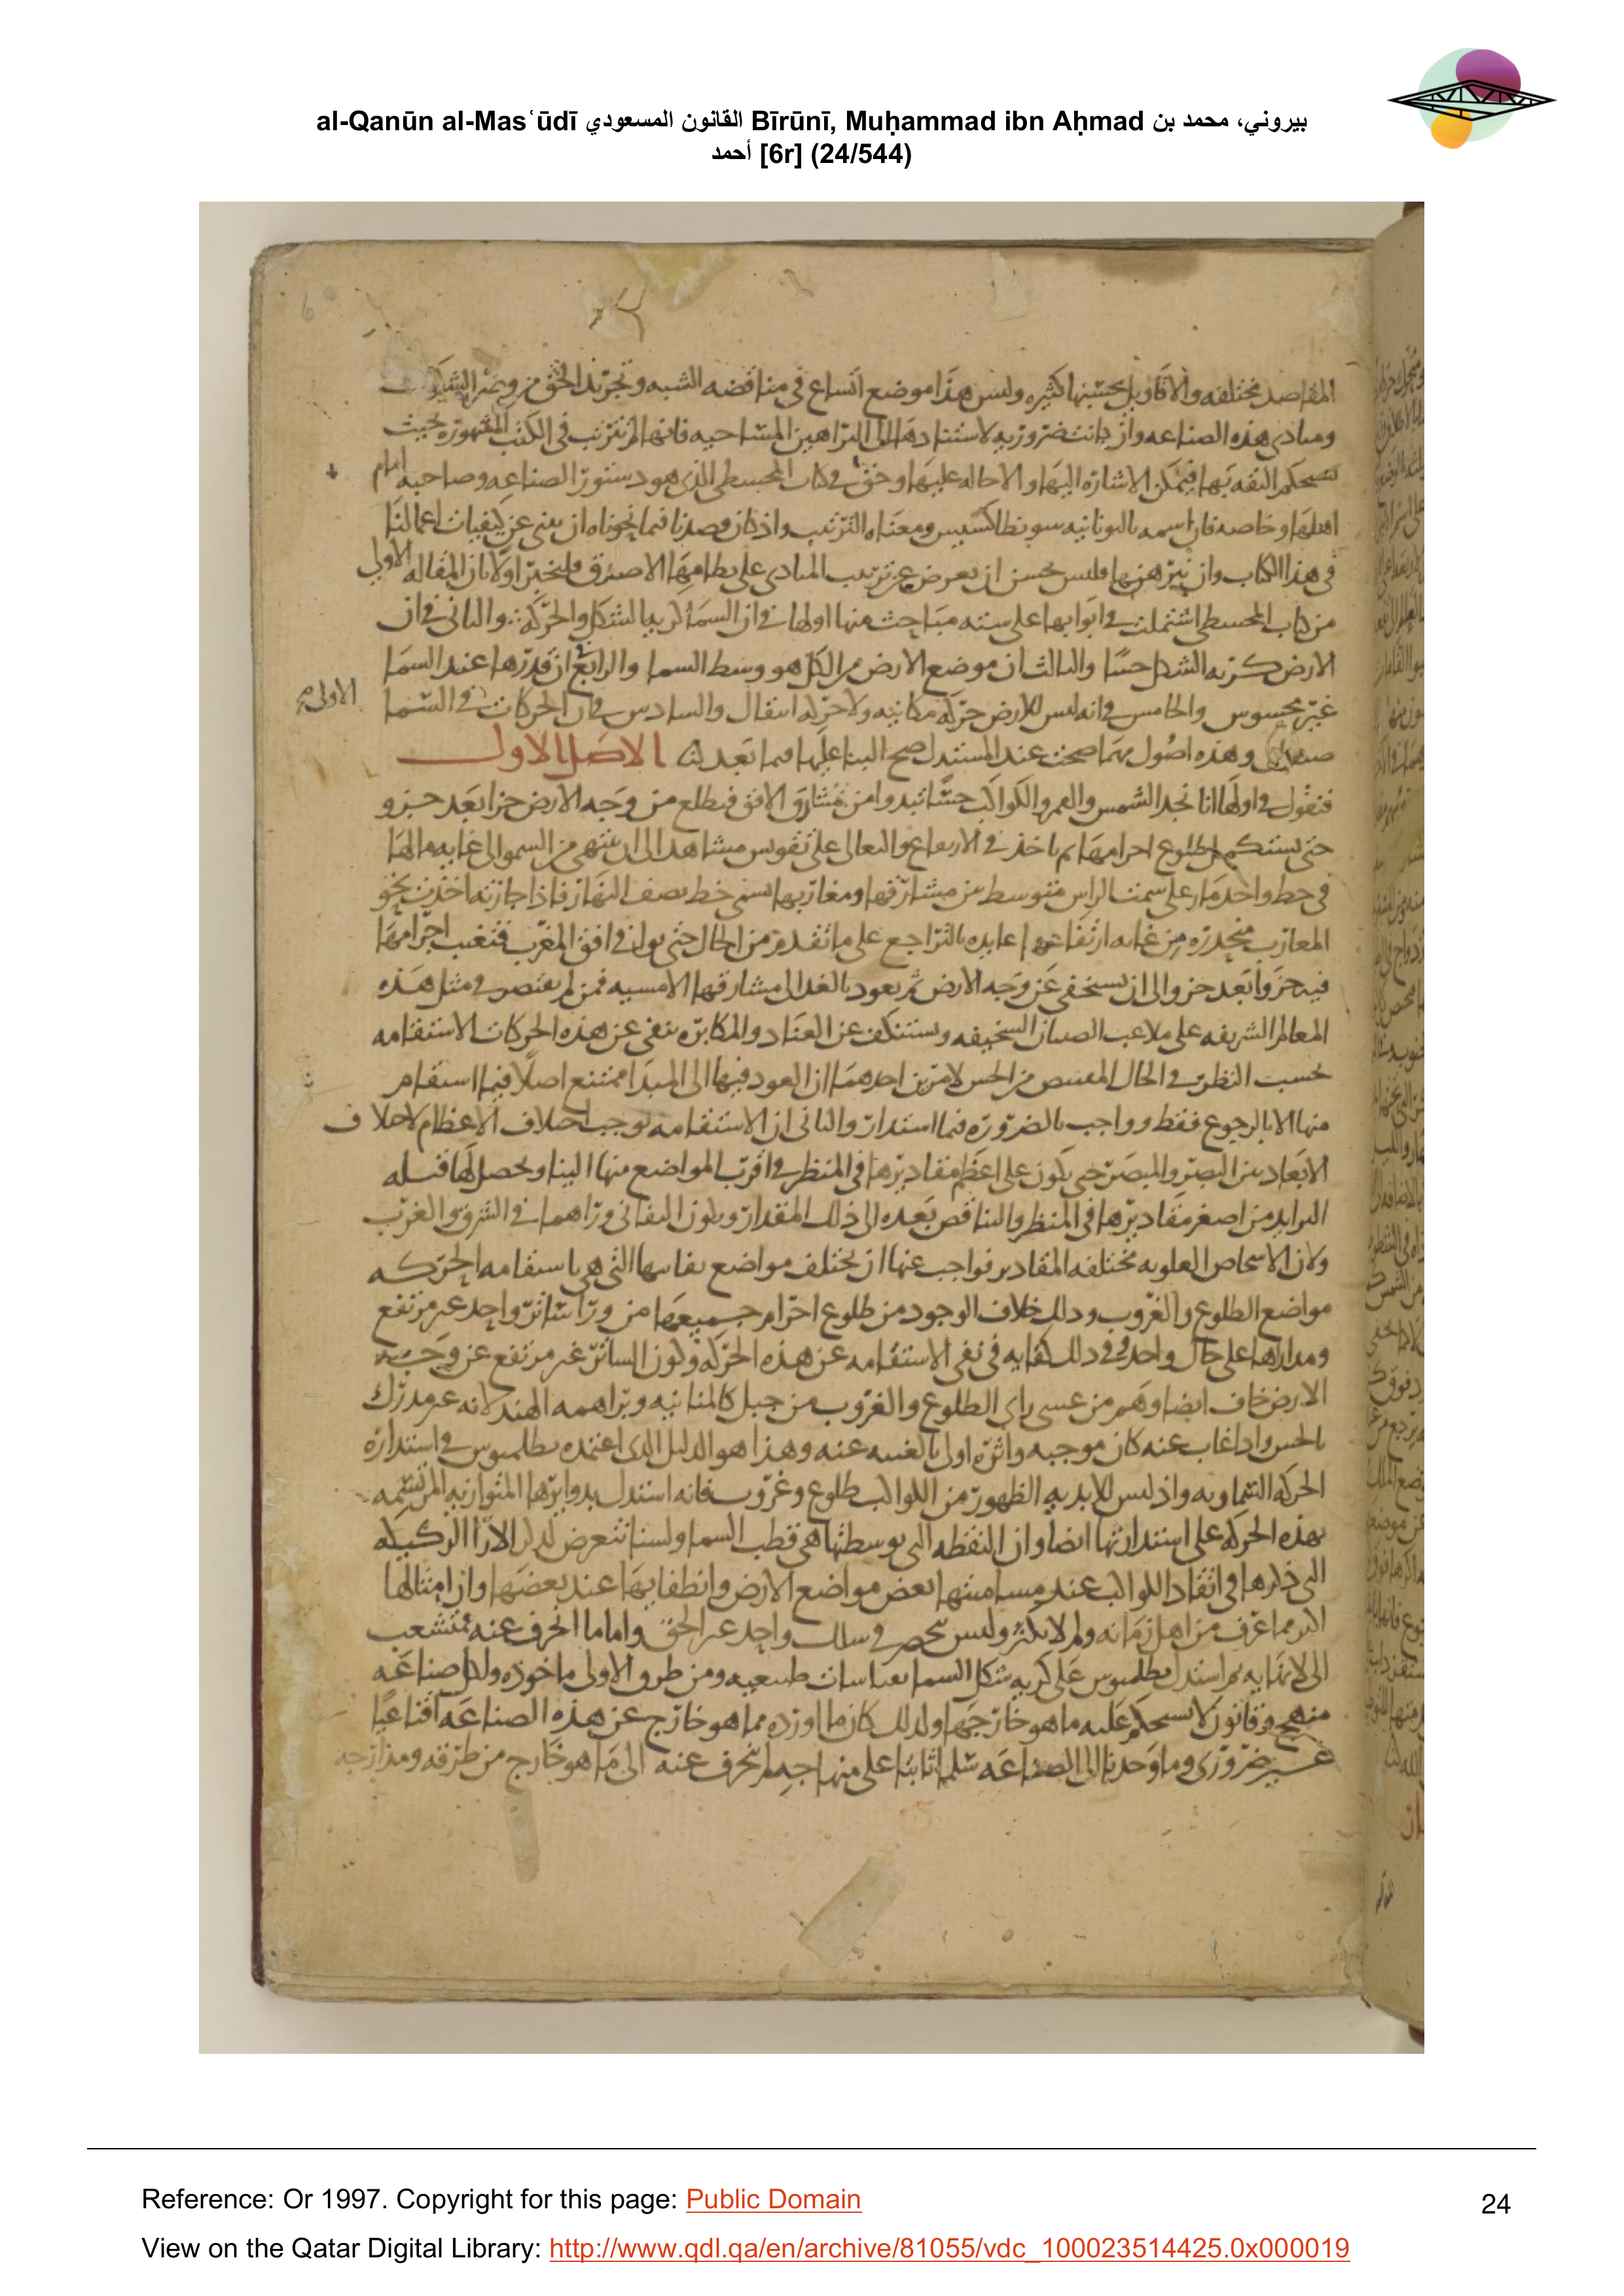 al-Qanūn al-Masʿūdī القانون المسعودي Bīrūnī, Muḥammad ibn Aḥmad بيروني، محمد بن
أحمد [6r] (24/544)
6
المقاصد مختلفه والاقاويل بحسبها كثيره وليس هذا موضع اتساع فى مناقضه الشبه وتجريد الحق من
ومبادى هذه الصناعه وان كانت ضروريه لاستنادها الى البراهين المساحيه فانها لم تترتب فى الكتب المشهوره بحيث
تستحكم الثقه بها فيمكن الاشاره اليها والاحاله عليها وحق فى كتاب المجسطى الذى هو دستور الصناعه وصاحبه امام
اهلها وخاصه فان اسمه باليونانيه سونطاكسيس ومعناه الترتيب واذ كان قصدنا فيما نحوناه ان ينبى عن كيفيات اعمالنا
فى هذا الكتاب وان نبرهنها فليس يحسن ان نعرض عن ترتيب المبادى على نظامها الاصدق فلنخبر اولا بان المقاله الاولى
من كتاب المجسطى اشتملت فى ابوابها على سته مباحث منها اولها فى ان السما كريه الشكل والحركه والثانى فى ان
الارض كريه الشكل حسا والثالث ان موضع الارض من الكل هو وسط السما والرابع ان قدرها عند السما
غير محسوس والخامس فى انه ليس للارض حركه مكانيه ولا حركه انتقال والسادس فى ان الحركات فى السما
الاولى
صنفان وهذه اصول مهما صحت عند المستدل صح البنا عليها فيما بعد لنا الاصل الاول
فنقول فى اولها انا نجد الشمس والقمر والكواكب حسا تبدوا من مشارق الافق فتطلع من وجه الارض جزا بعد جزو
حتى يستكمل طلوع اجرامها ثم ياخذ فى الارتفاع والتعالى على تقويس مشاهد الى ان ينتهى من السمو الى غايه مالها
فى خط واحد مار على سمت الراس متوسط بين مشارقها ومغاربها يسمى خط نصف النهار فاذا جازته اخذت نحو
المغارب منحدره من غايه ارتفاعها عايده بالتراجع على ما تقدم من الحال حتى توافى افق المغرب فتغيب اجرامها
فيه جزوا بعد جزو الى ان تستخفى عن وجه الارض ثم يعود بالغد الى مشارقها الامسيه فمن لم يقتصر فى مثل هذه
المعالم الشريفه على ملاعب الصبيان السخيفه ويستنكف عن العناد والمكابره نفى عن هذه الحركات الاستقامه
بحسب النظر فى الحال المقتبس من الحس لامرين احدهما ان العود فيها الى المبدا ممتنع اصلا فيما استقام
منها الا بالرجوع فقط وواجب بالضروره فيما استدار والثانى ان الاستقامه توجب اختلاف الاعظام لاختلاف
الابعاد بين البصر والمبصر حتى يكون على اعظم مقاديرها فى المنظر فى اقرب المواضع منها الينا ويحصل لها قبله
التزايد من اصغر مقاديرها فى المنظر والتناقص بعده الى ذلك المقدار ويكون التفانى وراهما فى الشرق والغرب
ولان الاشخاص العلويه مختلفه المقادير فواجب عنها ان يختلف مواضع تفانيها التى هى باستقامه الحركه
مواضع الطلوع والغروب وذلك خلاف الوجود من طلوع اجرام جميعها من ورا ساتر واحد غير مرتفع
ومدارها على حال واحد وفى ذلك كفايه فى نفى الاستقامه عن هذه الحركه وكون الساتر غير مرتفع عن وجه
الارض خاف ايضا وهم من عسى راى الطلوع والغروب من جبل كالمنانيه وبراهمه الهند لانه غير مدرك
بالحس واذا غاب عنه كان موجبه واثره اولى بالغيبه عنه وهذا هو الدليل الذى اعتمده بطلميوس فى استداره
الحركه السماويه واذ ليس للابديه الظهور من الكواكب طلوع وغروب فانه استدل بدوايرها المتوازيه المرتسمه
بهذه الحركه على استدارتها ايضا وان النقطه التى توسطتها هى قطب السما ولسنا نتعرض لذكر الارا الركيكه
التى ذكرها فى اتقاد الكواكب عند مسامتتها بعض مواضع الارض وانطفايها عند بعضها وان امثالها
اكثر مما عرف من اهل زمانه ولم لا يكثر وليس ينحصر فى سلك واحد غير الحق واما ما انحرف عنه فمتشعب
الى لا نهايه ثم استدل بطلميوس على كريه شكل السما بقياسات طبيعيه ومن طرق الاولى ماخوذه ولكل صناعه
منهج وقانون لا يستحكم عليه ما هو خارجها ولذلك كان ما اورده مما هو خارج عن هذه الصناعه اقناعيا
غير ضرورى وما وجدنا الى الصناعه سلما ثابتا على منهاجه لم ننحرف عنه الى ما هو خارج من طرقه ومدارجه
Reference: Or 1997. Copyright for this page: Public Domain
24
View on the Qatar Digital Library: http://www.qdl.qa/en/archive/81055/vdc_100023514425.0x000019